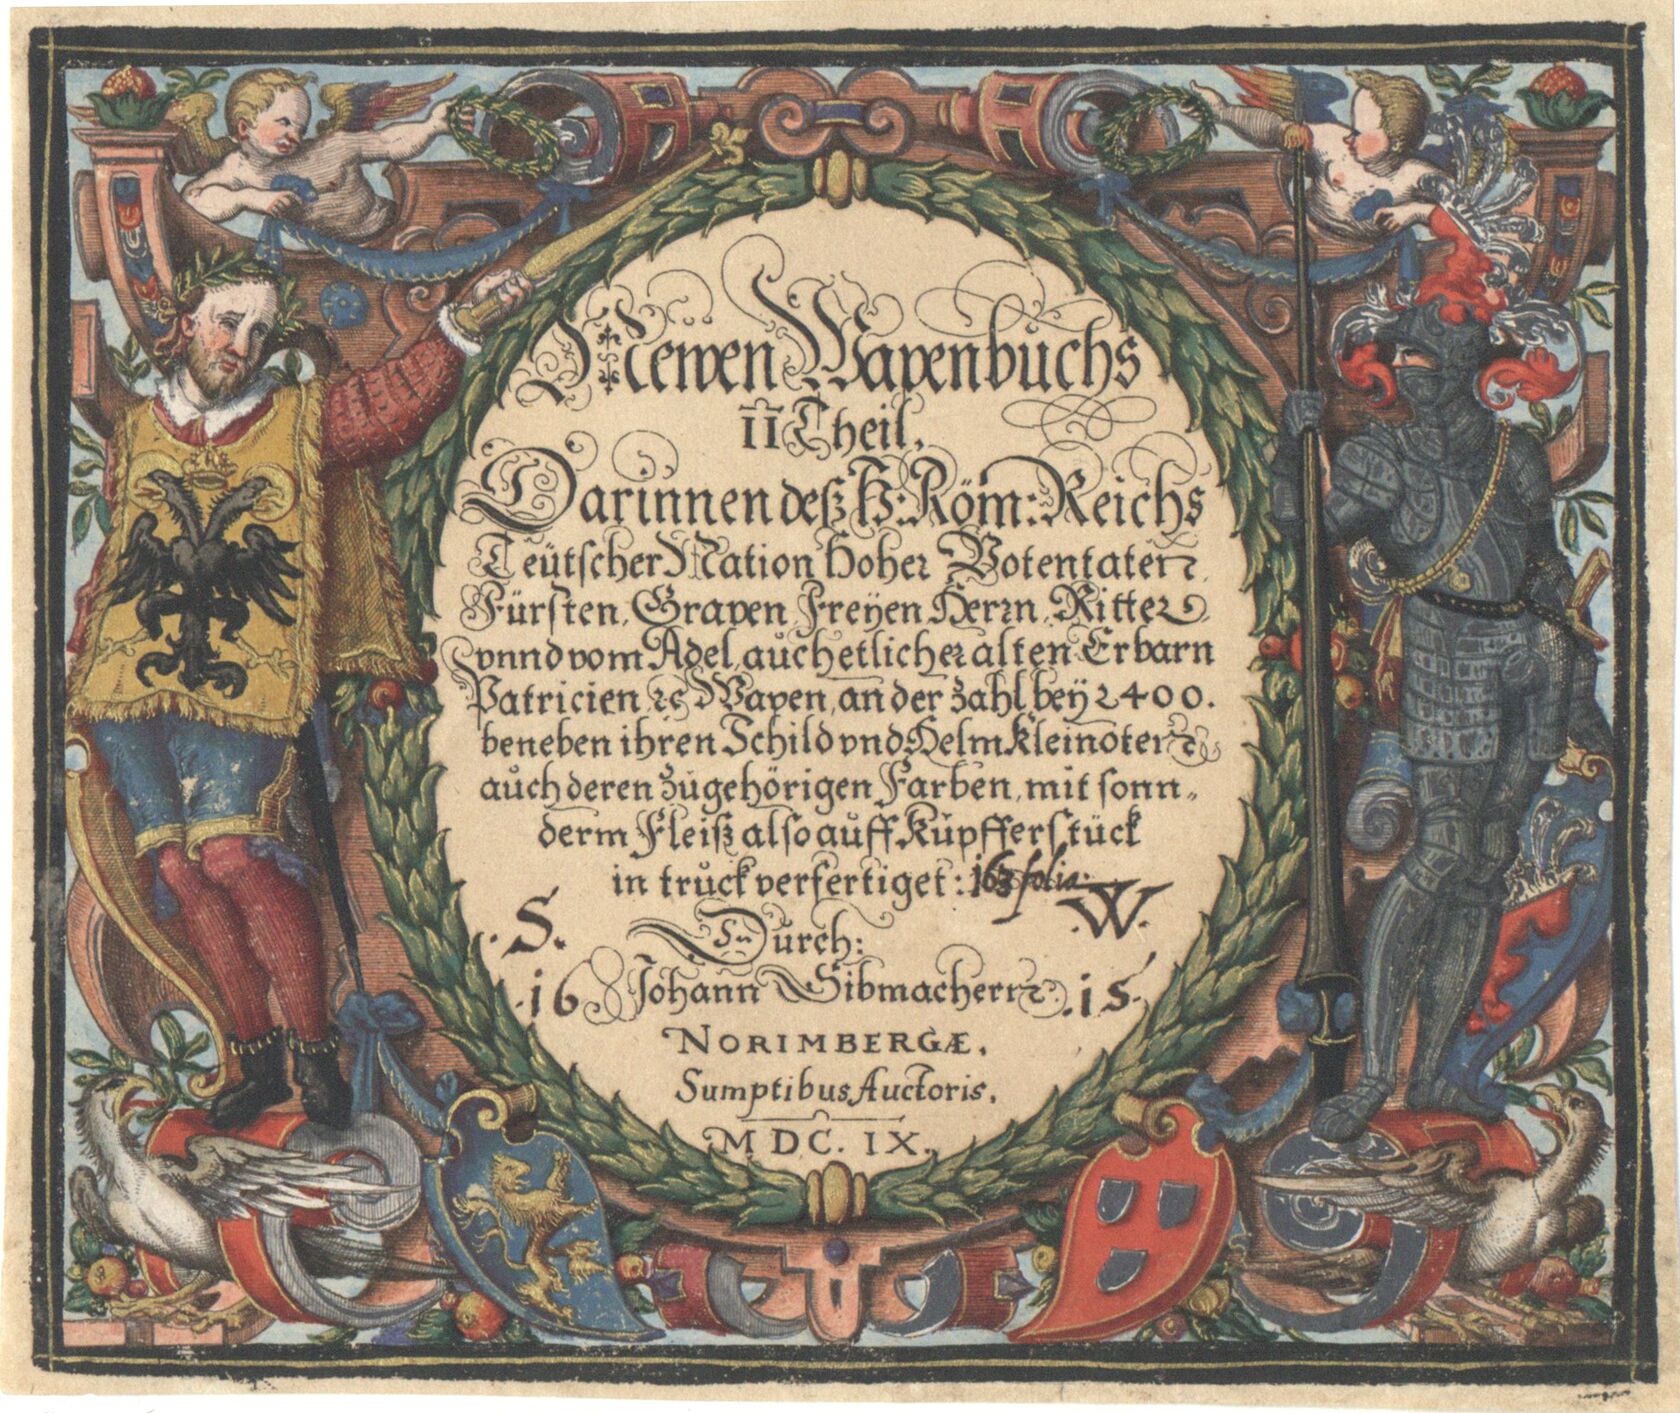 Newen Wapenbuchs
II Theil,
Darinnen deß H: Röm: Reichs
Teütscher Nation hoher Potentaten,
Fürsten, Graven, Freÿen, Herrn, Ritter,
vnnd vom Adel, auch etlicher alten Erbarn
Patricien ꝛc Wapen, an der Zahl beÿ 2400.
beneben ihren Schild vnd Helm Kleinoten,
auch deren zugehörigen Farben, mit sonn„
derm Fleiß also auff Kupfferstück
in truck verfertiget: 163 folia.
.S. .W.
Durch:
.16 Johann Sibmachern. .15.
NORIMBERGÆ.
Sumptibus Auctoris.
M D C. IX.